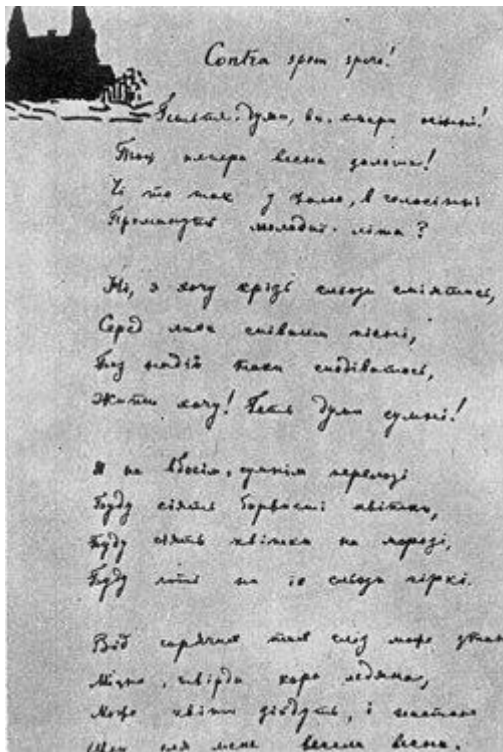 Contra spem spero!
Гетьте, думи, ви, хмари осінні!
Тож тепера весна золота!
Чи то так у жалю, в голосінні
Проминуть молодиї літа?
Ні, я хочу крізь сльози сміятись,
Серед лиха співати пісні,
Без надій таки сподіватись,
Жити хочу! Геть думи сумні!
Я на вбогім, сумнім перелозі
Буду сіять барвисті квітки,
Буду сіять квітки на морозі,
Буду лить на їх сльози гіркі.
Від гарячих тих сліз може
Міцна, твірда кора ледяна,
Може квіти зійдуть, і настане
Ще й для мене весела весна.